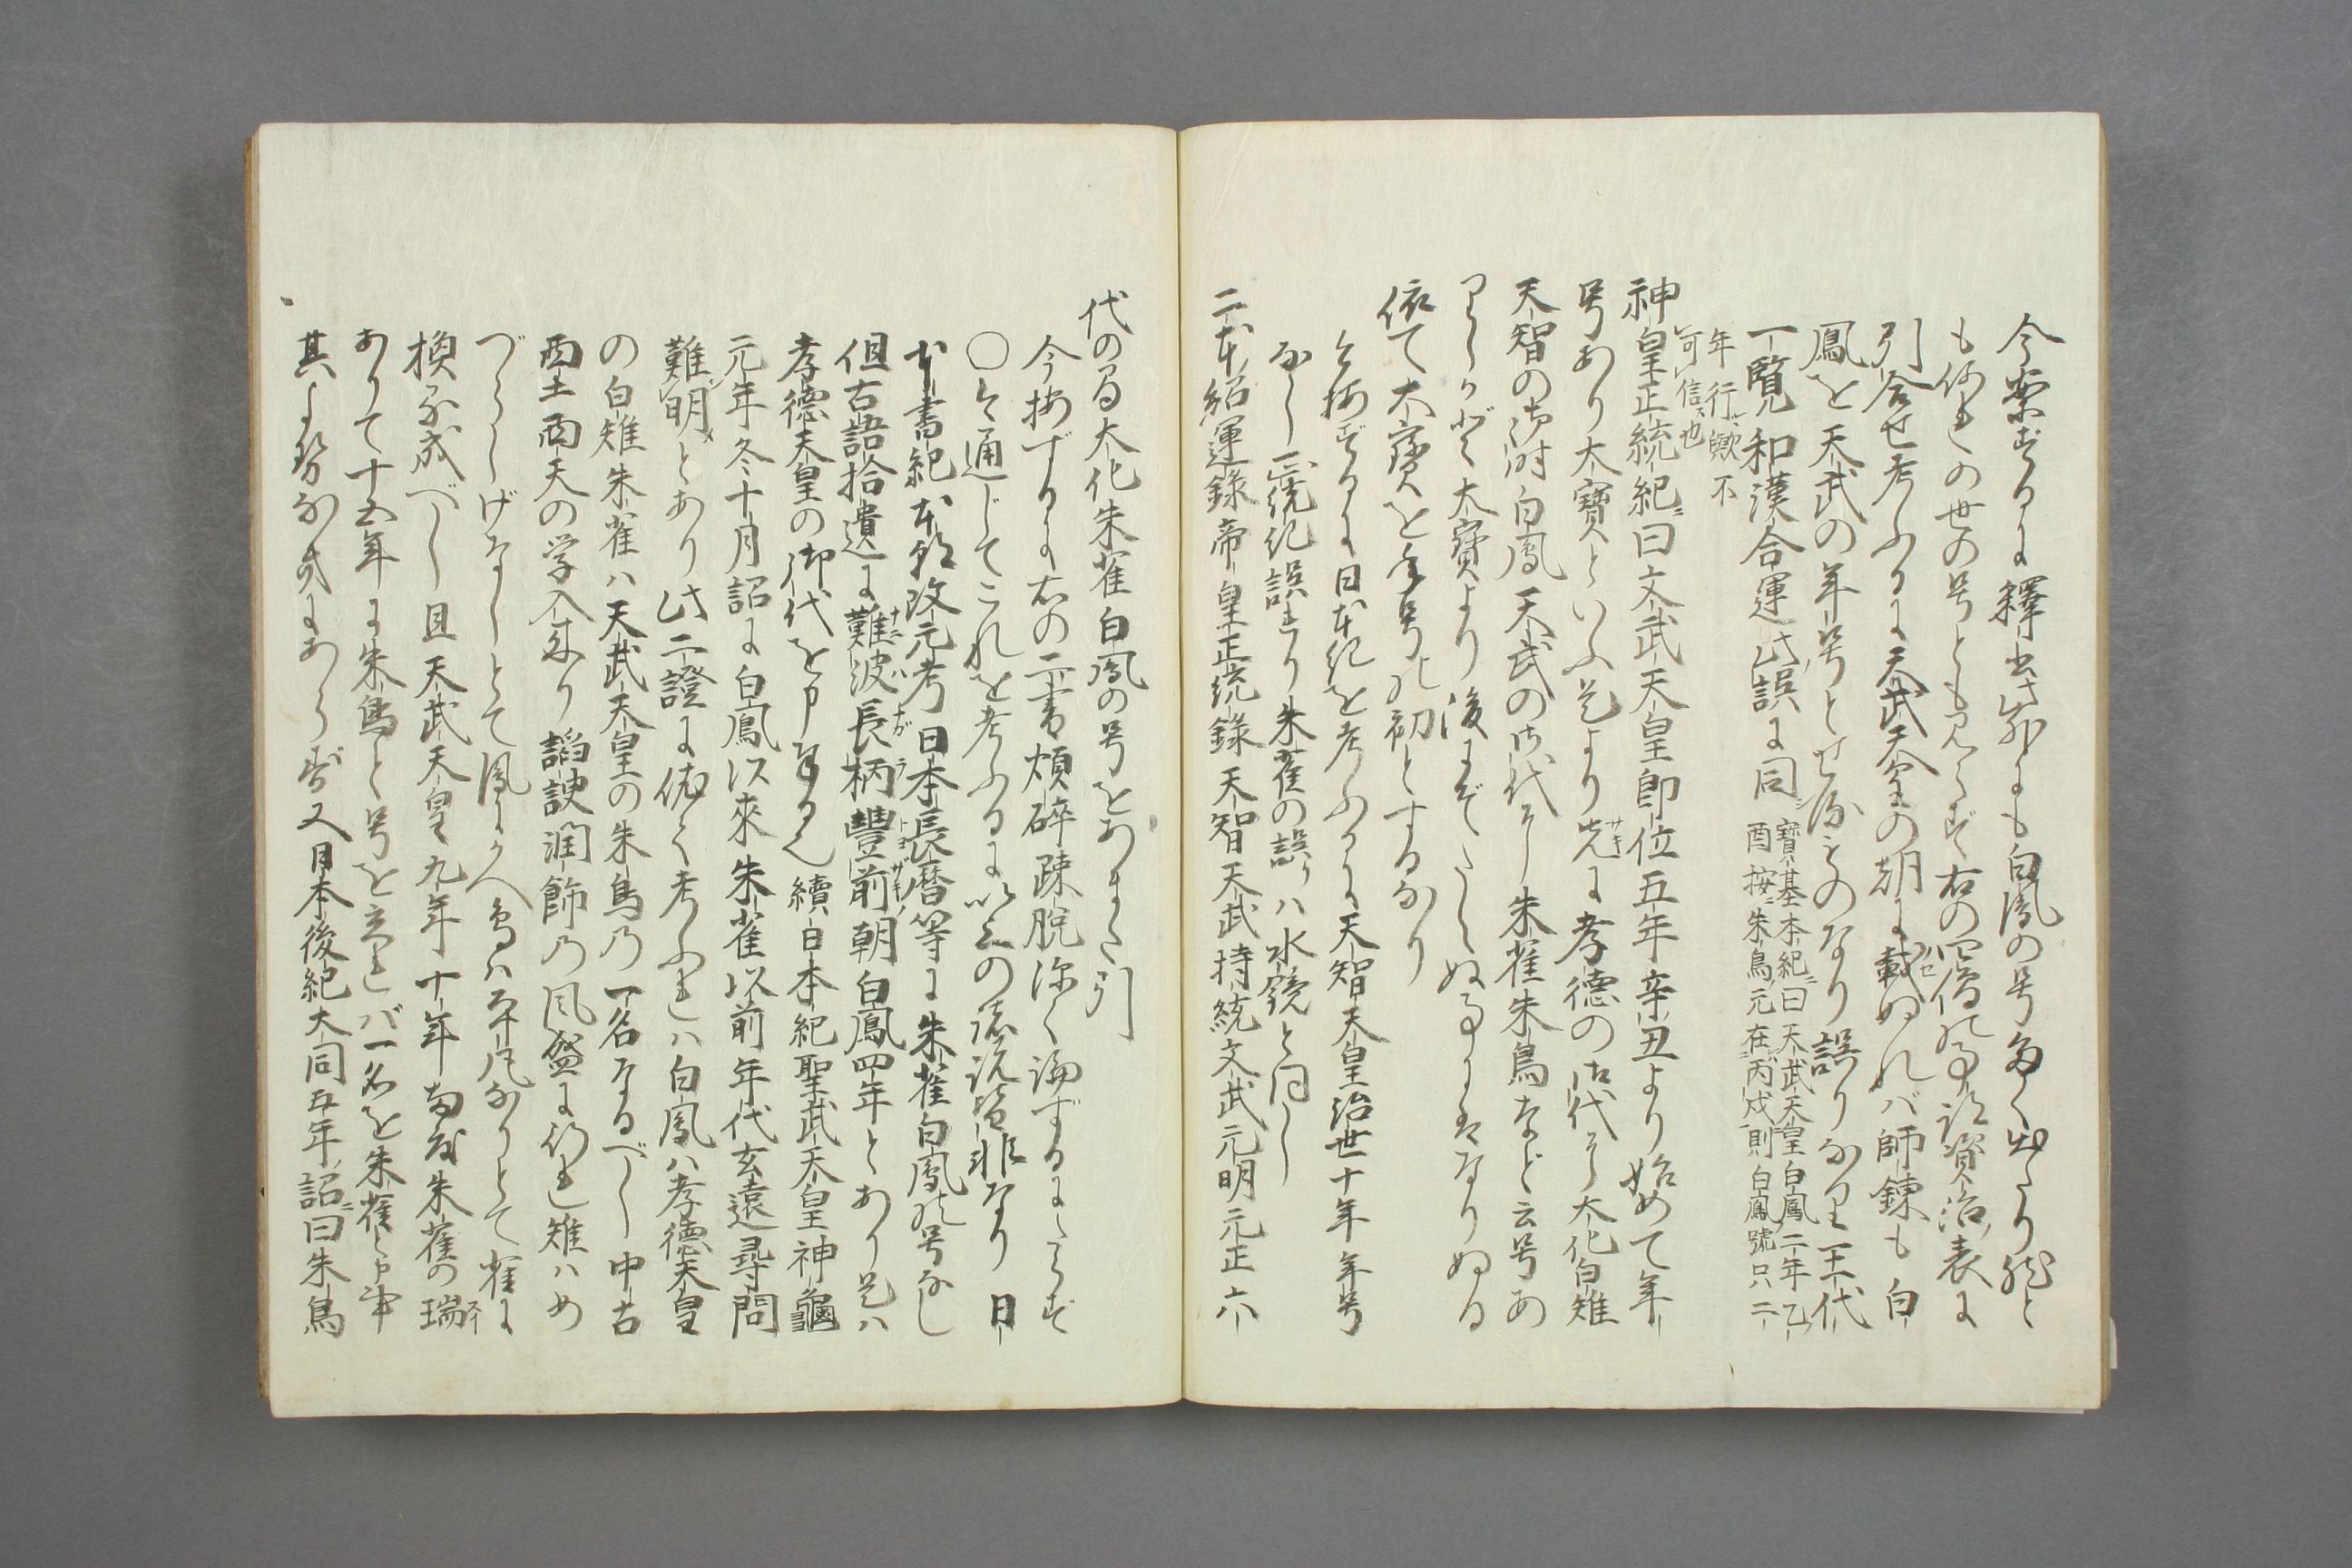 今案ずるに釋書此外にも白鳳の号多く出たり然と
も何れの世の号とも見えず右の僧の事跡資治表に
引合せ考ふるに天武天皇の朝に載ぬれバ師錬も白
鳳を天武の年号とせるものなり誤りなり王代
一覽和漢合運此誤に同
寶基本紀曰天武天皇白鳳二年乙
酉按朱鳥元在丙戌則白鳳號只二
年行歟不
可信也
神皇正統紀曰文武天皇即位五年辛丑より始めて年
号あり大寶といふ是より先に孝德の御代に大化白雉
天智の御時白鳳天武の御代に朱雀朱鳥など云号あ
りしかど大寶より後にぞたえぬ事にはなりぬる
依て大寶を年号の初とするなり
今按ずるに日本紀を考ふるに天智天皇治世十年年号
なし正統紀誤れり朱雀の誤りハ水鏡と同し
二本紹運録帝皇正統録天智天武持統文武元明元正六
代の間大化朱雀白鳳の号をあまた引
今按ずるに右の二書煩碎疎脱深く論ずるにたらず
〇今通じてこれを考ふるに以上の諸説皆非なり日
本書紀本朝改元考日本長暦等に朱雀白鳳の号なし
但古語拾遺に難波長柄豐前朝白鳳四年とあり是ハ
孝德天皇の御代を申せるなり續日本紀聖武天皇神龜
元年冬十月詔に白鳳以來朱雀以前年代玄遠尋問
難明とあり此二證に依て考ふれハ白鳳ハ孝德天皇
の白雉朱雀ハ天武天皇の朱鳥乃一名なるべし中古
西土西天の学入来り謟諛潤飾乃風盛に行れ雉ハめ
づらしげなしとて鳳にかへ鳥ハ平凡なりとて雀に
換るな成べし且天武天皇九年十年両度朱雀の瑞
ありて十五年に朱鳥と号を立れバ一名を朱雀と申事
其よりなきにあらず又日本後紀大同五年詔曰朱鳥